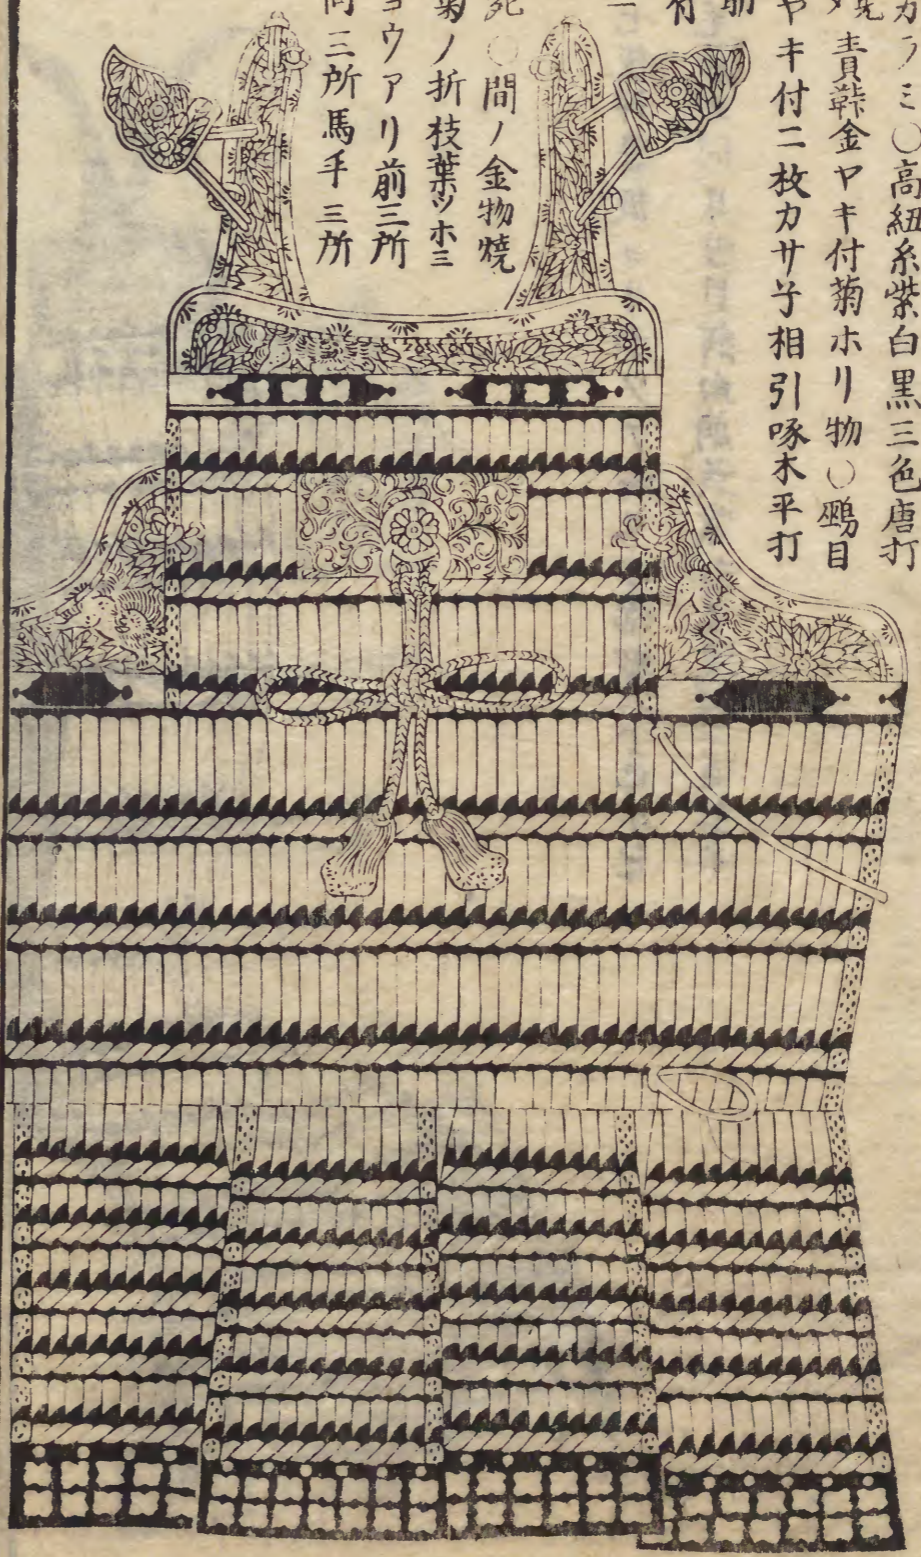 カフミ〇高紐糸紫白黒三色唐打
責鞐金ヤキ付菊ホリ物〇鵐目
ヤキ付二枚カサ子相引啄木平打
付
〇間ノ金物焼
菊ノ折枝葉ツホミ
ヨウアリ前三所
同三所馬手三所